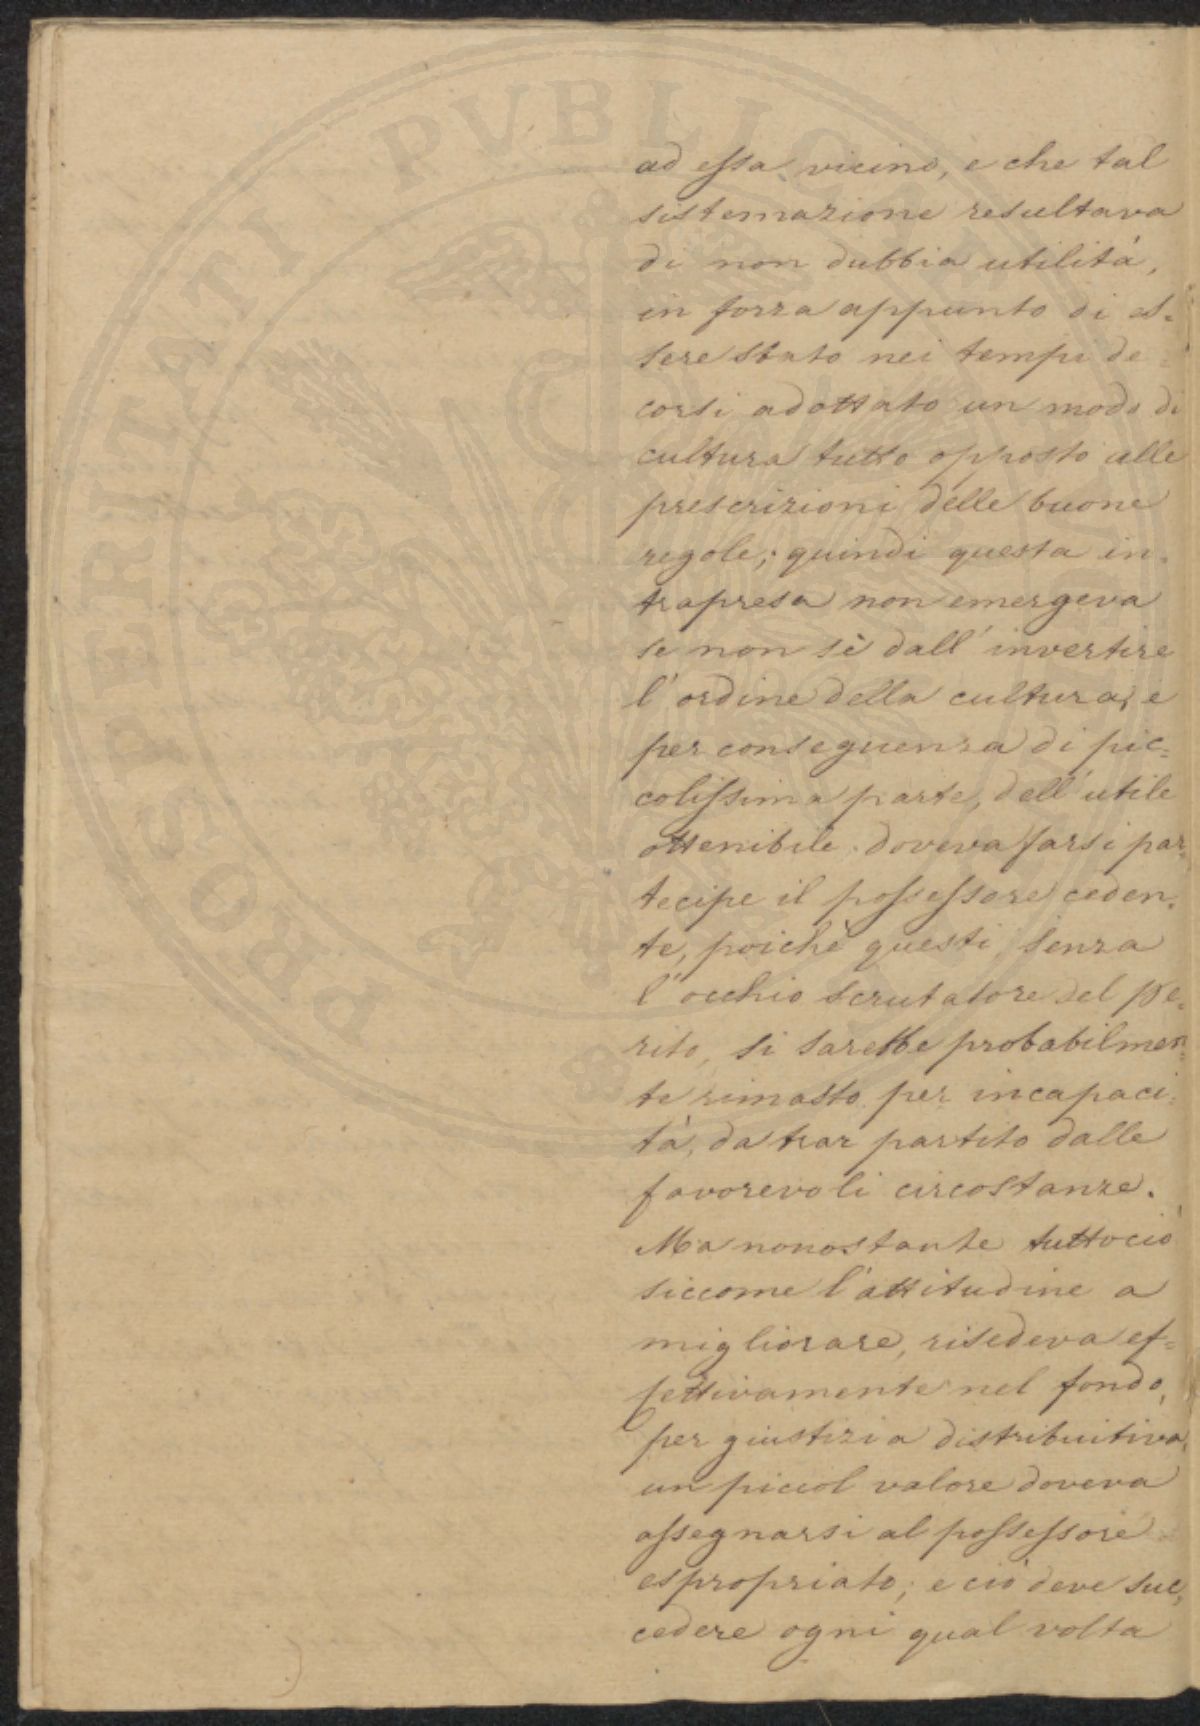 PROSPERITATI PVBLICAE
ad essa vicino, e che tal
sistemazione resultava
di non dubbia utilità,
in forza appunto di es-
sere stato nei tempi de-
corsi adottato un modo di
cultura tutto opposto alle
prescrizioni delle buone
regole; quindi questa in-
trapresa non emergeva
se non sè dall'invertire
l'ordine della cultura, e
per conseguenza di pic-
colissima parte, dell'utile
ottenibile doveva farsi par-
tecipe il possessore ceden-
te, poichè questi, senza
l'occhio scrutatore del pe-
rito, si sarebbe probabilmen-
te rimasto per incapaci-
tà, da trar partito dalle
favorevoli circostanze.
Ma nonostante tuttociò
siccome l'attitudine a
migliorare, risedeva ef-
fettivamente nel fondo,
per giustizia distributiva,
un picciol valore doveva
assegnarsi al possessore
espropriato; e ciò deve suc-
cedere ogni qual volta